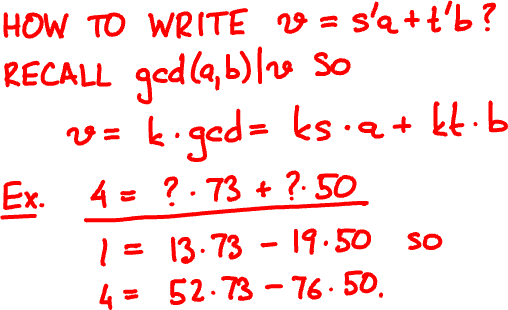 HOW TO WRITE v = s'a + t'b?
RECALL gcd(a,b)|v SO
v = k · gcd = ks · a + kt · b
Ex. 4 = ? · 73 + ? · 50
1 = 13 · 73 - 19 · 50 so
4 = 52 · 73 - 76 · 50.